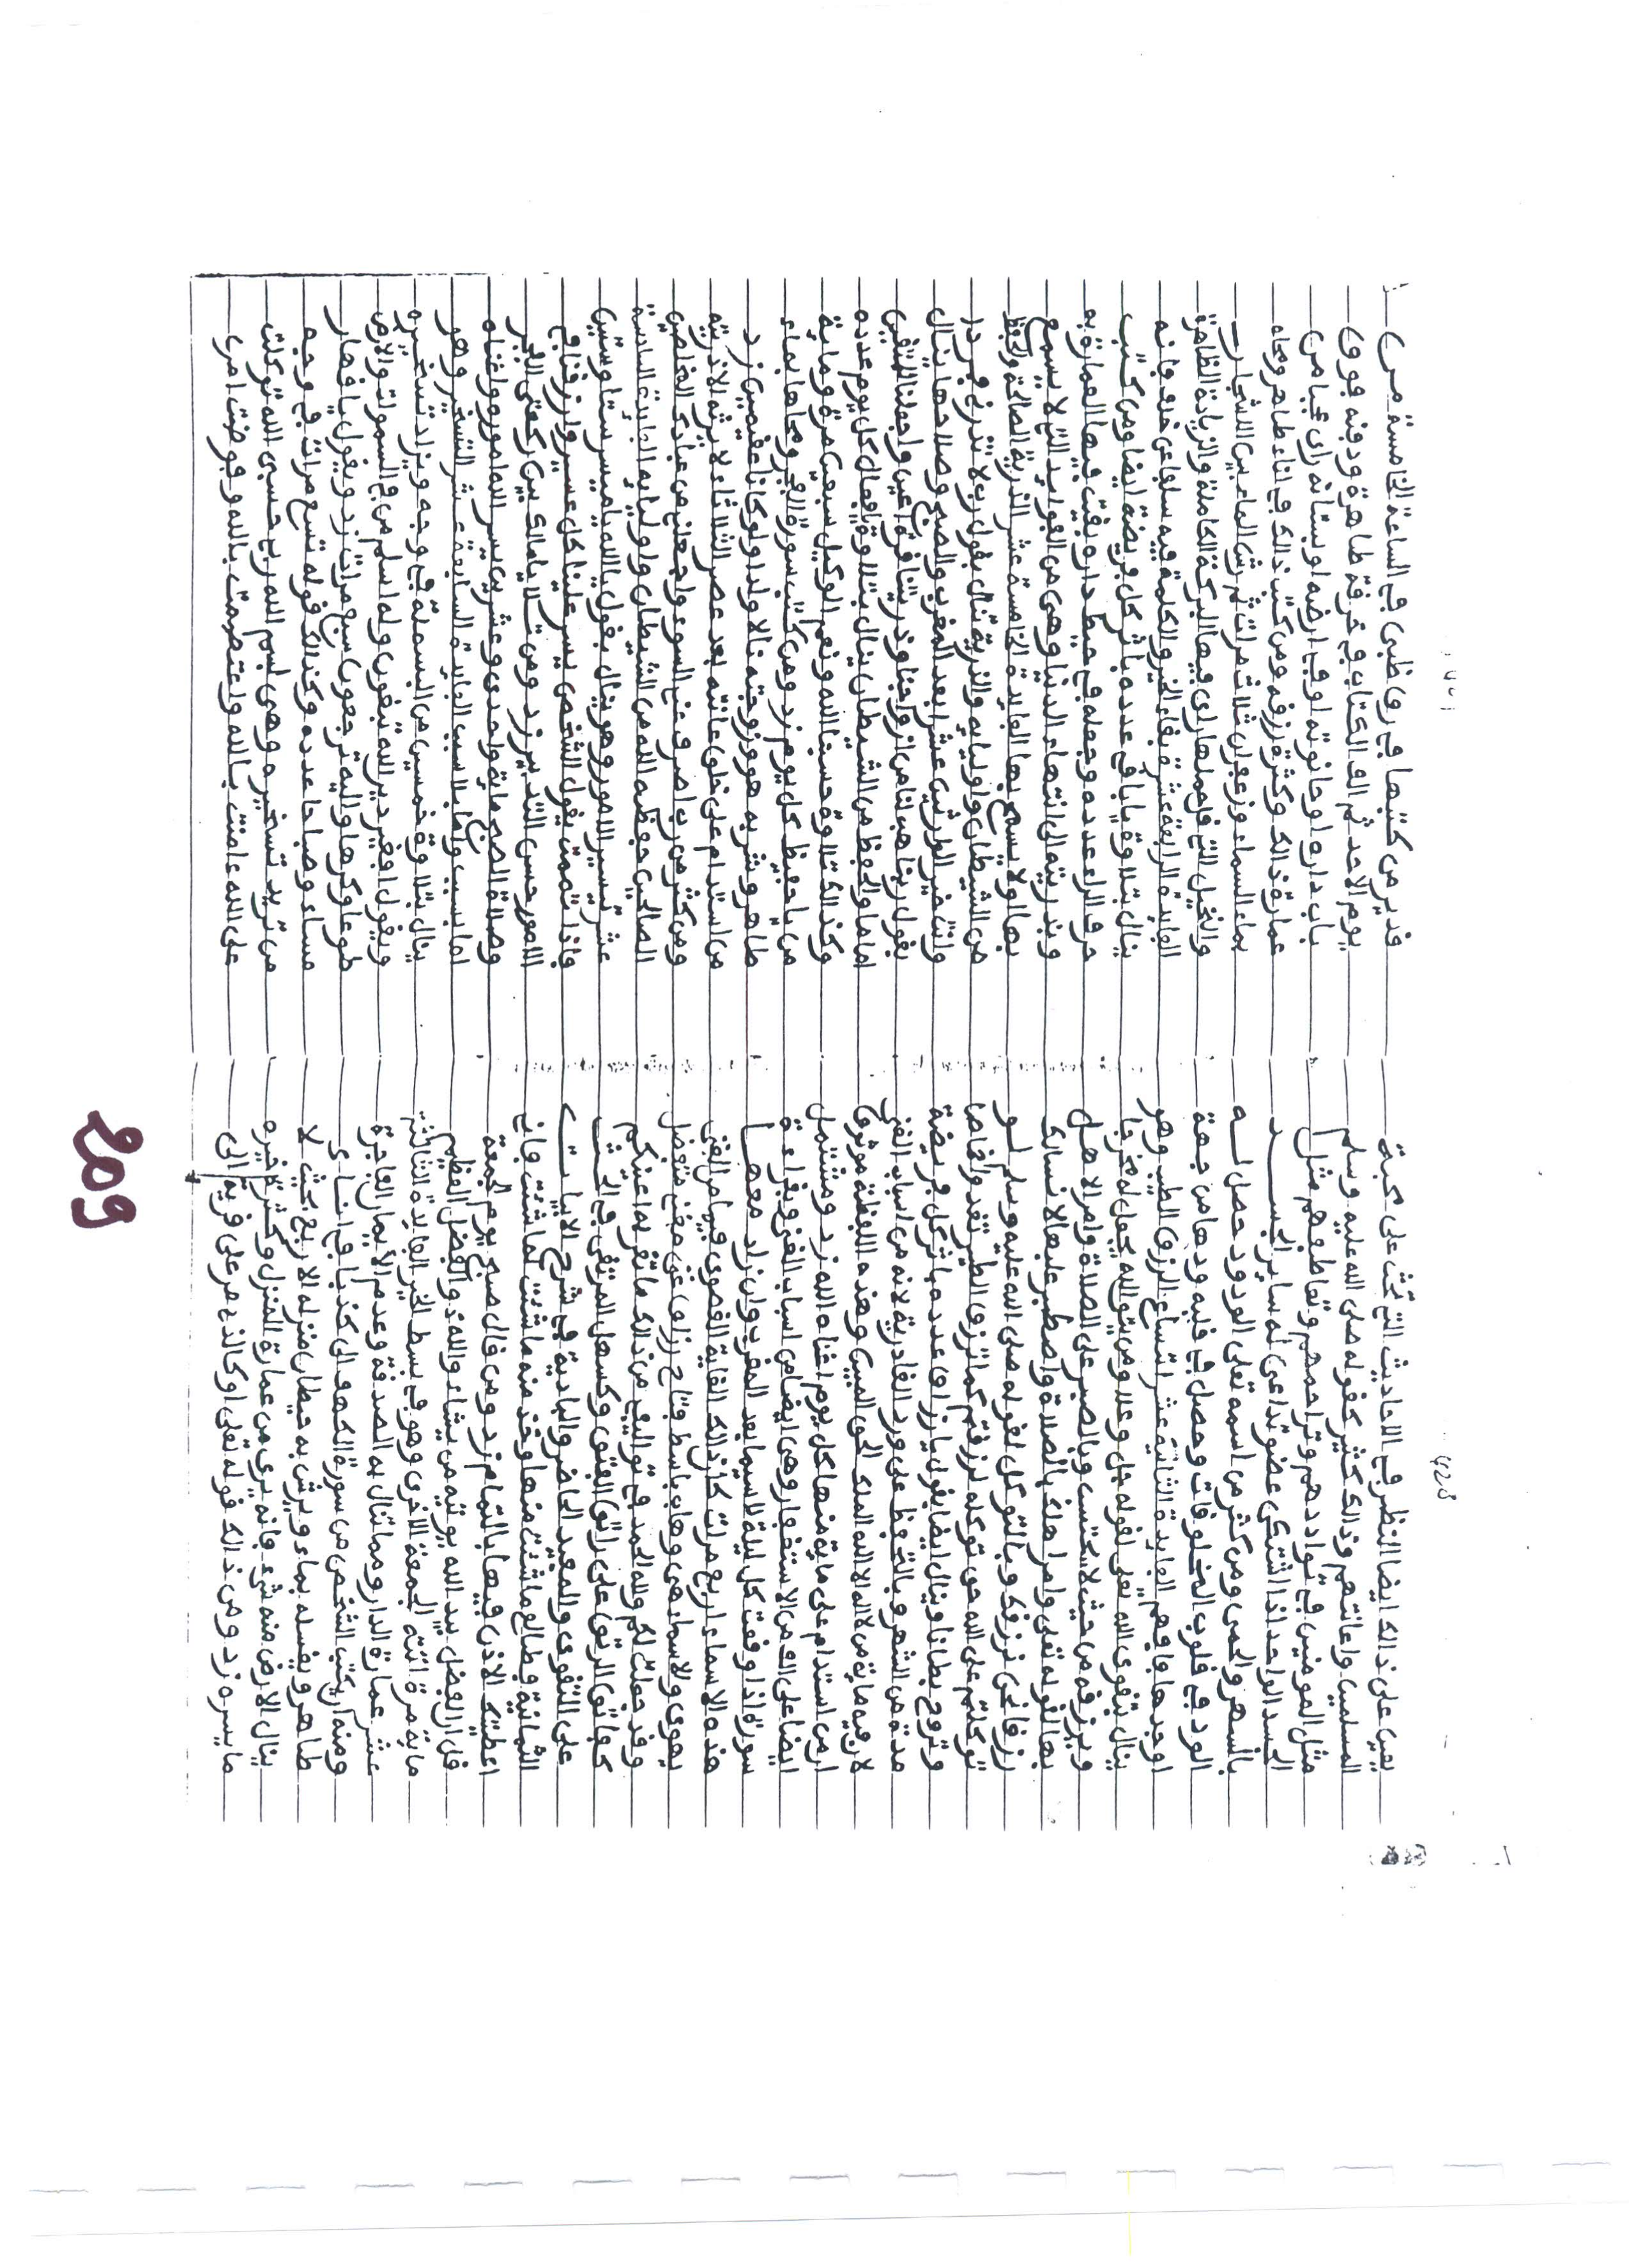 428
يعين على ذالك ايضا النظر في الاحاديث التي تحث على محبة
المسلمين واعانتهم وذالك كثير كقوله صلى الله عليه وسلم
مثل المومنين في تواددهم وتراحمهم وتعاطفهم مثل
الجسد الواحد اذا اشتكى عضو تداعى له ساير الجسد
بالسهر والحمى ومن كثر من اسمه تعلى الودود حصل له
الود في قلوب المخلوقات وحصل في قلبه ودها من جهة
اوجدها فافهم الفايدة الثانية عشر اتساع الرزق الطيب وهو
ينال بتقوى الله تعلى لقوله جل وعلا ومن يتق الله يجعل له مخرجا
ويرزقه من حيث لا يحتسب وبالصبر على الصلاة وامر الاهل
بها لقوله تعلى وامر اهلك بالصلاة واصطبر عليها لا نسالك
رزقا نحن نرزقك وبالتوكل لقوله صلى الله عليه وسلم لو
توكلتم على الله حق توكله لرزقتم كما ترزق الطير تغدو خماصا
وتروح بطانا وينال ايضا بقول يارزاق عدده باثر كل فريضة
مدة من الشهر وبالتحفظ على ورد القادرية لانه من اسباب الغنى
لان فيه ماية من لا اله الا الله الملك الحق المبين وهذه اللفظة موثرة
ان من استدام على ماية منها كل يوم اغناه الله زد ومشتمل
ايضا على الف من الاستغفار وهي ايضا من اسباب الغنى وبقراءة
سورة اذا وقعت كل ليلة لاسيما بعد المغرب وان زاد معها
هذه الاسماء اربع مرات كان ذالك الغاية القصوى فيها من الغنى
والاسماء هي وهاب باسط فتاح رزاق غني مغني متفضل
وقد جعلت لكم ولله الحمد في تواليفي من ذالك ما تقر به اعينكم
كفاتق الرتق على راتق الفتق وكسهل المرتقى في الحث
على التقوى والمفيد الحاضر والبادية في شرح الابيات
الثمانية وطالع ما شئت منها وخذ منه ما شئت لما شئت فاني
اعطيتك الاذن فيها بالتمام زد ومن قال صبح يوم الجمعة
قل ان الفضل بيد الله يوتيه من يشاء والله ذو الفضل العظيم
ماية مرة اتته الجمعة الاخرى وهو في بسط الخير الفايدة الثالثة
عشر عمارة الدار ومما تنال به الصدقة وعدم الأيمان الفاجرة
ومنه ان يكتب الشخص من سورة الكهف الى كذبا في اناء
طاهر ويغسله بماء ويرش به حيطان منزله الاربع بحيث لا
ينال الارض منه شيء فانه يرى من عمارة المنزل وكثرة خيره
ما يسره زد ومن ذالك قوله تعلى اوكالذي مر على قرية الى
قدير من كتبها في رق ظبي في الساعة الخامسة من
يوم الاحد ثم الف الكتاب في خرقة طاهرة ودفنه فوق
باب داره او حانوته او في ارضه او بستانه راى عجبا من
عمارة ذالك وكثرة رزقه ومن كتب ذالك في اناء طاهر ومحاه
بماء السماء وزعفران ثلاث مرات ثم رش الماء بين الاشجار
والنخيل التي راى فيها البركة الكاملة والزيادة الظاهرة
الفايدة الرابعة عشر بقاء الخير والكلمة فيه سلفا عن خلف فانه
ينال بتلاوة يا باقي عدده باثر كل فريضة ايضا ومن كتب
حرف الراء عدده وجعله في حيط داره بقيت فيها العمارة به
وبذريته الى انتهاء الدنيا وهي من التي لا يسمح
بها ولا يسمع بها الفايدة الخامسة عشر الذرية الصالحة والحفظ
من الشيطان واوليايه والذرية تنال بقول رب لا تذرني فردا
وانت خير الوارثين عشرا بعد المغرب والصبح وصلاحها ينال
بقول ربنا هب لنا من ازواجنا وذريتنا قرة اعين واجعلنا للمتقين
اماما والحفظ من الشيطان ينال بتلاوة يافعال كل يوم عدده
وكذالك تلاوة حسبنا الله ونعم الوكيل سبعين مرة وماية
من ياحفيظ كل يوم زد ومن كتب سورة الفجر ومحاها بماء
طاهر وشربه هو وزوجته نالا ولدا ولو كانا عقيمين زد
من استدام على حلق عانته بعد عصر الثلاثاء لا
ومن كثر من رب اصرف عني السوء واجعلني من عبادك المخلصين
الصالحين حفظه الله من الشيطان واوليايه الفايدة السادسة
عشر تيسير الامور وهو ينال بقول يا الله يا ميسر ستا وستين
فاذا تممت يقول الشخص يسر علينا كل عسير وارزقنا في
الامور حسن التدبير زد ومن تلا يامالك بين ركعتي الفجر
وصلاة الصبح ماية واحدى وعشرين يسر الله اموره واغناه
اما بسبب واما بلا سبب الفايدة السابعة عشر التسخير وهو
ينال بتلاوة خمسين من البسملة في وجه من يراد تسخيره
ويقول افغير دين الله تبغون وله اسلم من في السموات والارض
طوعا وكرها واليه ترجعون سبع مرات زد ويقول ياقهار
مساء وصباحا عدده وكذالك قوله تسع مرات في وجه
من تريد تسخيره وهي بسم الله ربي حسبي الله توكلت
على الله ءامنت بالله واعتصمت بالله وفوضت امري
209